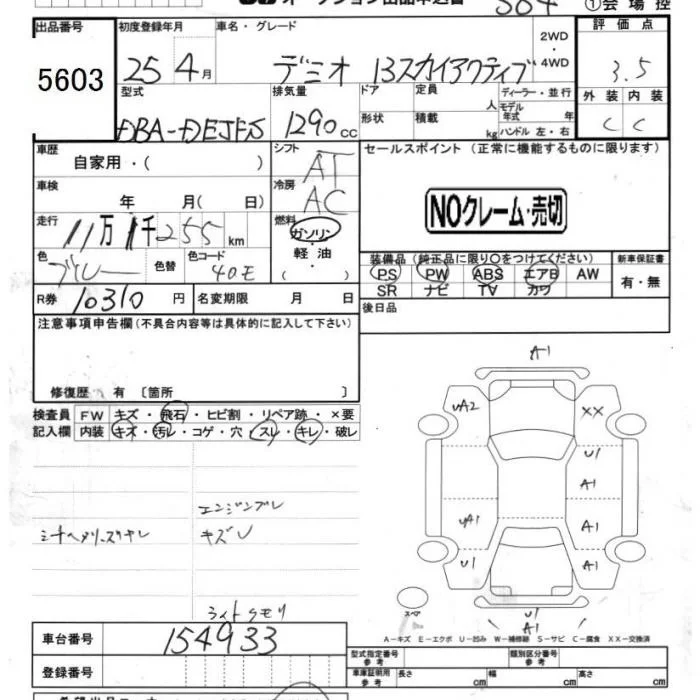 504 ①会場控
出品番号 初度登録年月 車名・グレード 評価点
5603
25年4月 デミオ 13スカイアクティブ 2WD・4WD 3.5
型式 排気量 ドア 定員 人 ディーラー・並行 外装 内装
DBA-DEJFS 1290cc 形状 積載 kg モデル年式 年 ハンドル 左・右 C C
車歴 シフト セールスポイント (正常に機能するものに限ります)
自家用・( ) AT
車検 冷房
年 月( 日) AC
NOクレーム・売切
走行 燃料
11万 千255km ガソリン・軽油
( )
色 ブルー 色替 色コード 40E
装備品 (純正品に限り○をつけてください) 新車保証書
PS PW ABS エアB AW 有・無
SR ナビ TV カワ
R券 10310円 名変期限 月 日 後日品
注意事項申告欄(不具合内容等は具体的に記入して下さい)
修復歴・有 〔箇所 〕
検査員 FW キズ・飛石・ヒビ割・リペア跡・×要
記入欄 内装 キズ・汚レ・コゲ・穴・スレ・キレ・破レ
エンジンブレ
キズU
ライトクモリ
A1
UA2 XX
U1
A1
UA1 A1
U1 A1
スペア
U1
A1
A-キズ E-エクボ U-凹み W-補修跡 S-サビ C-腐食 XX-交換済
車台番号 154933
登録番号
型式指定番号 参考 類別区分番号 参考
車庫証明用 参考 長さ cm 幅 cm 高さ cm